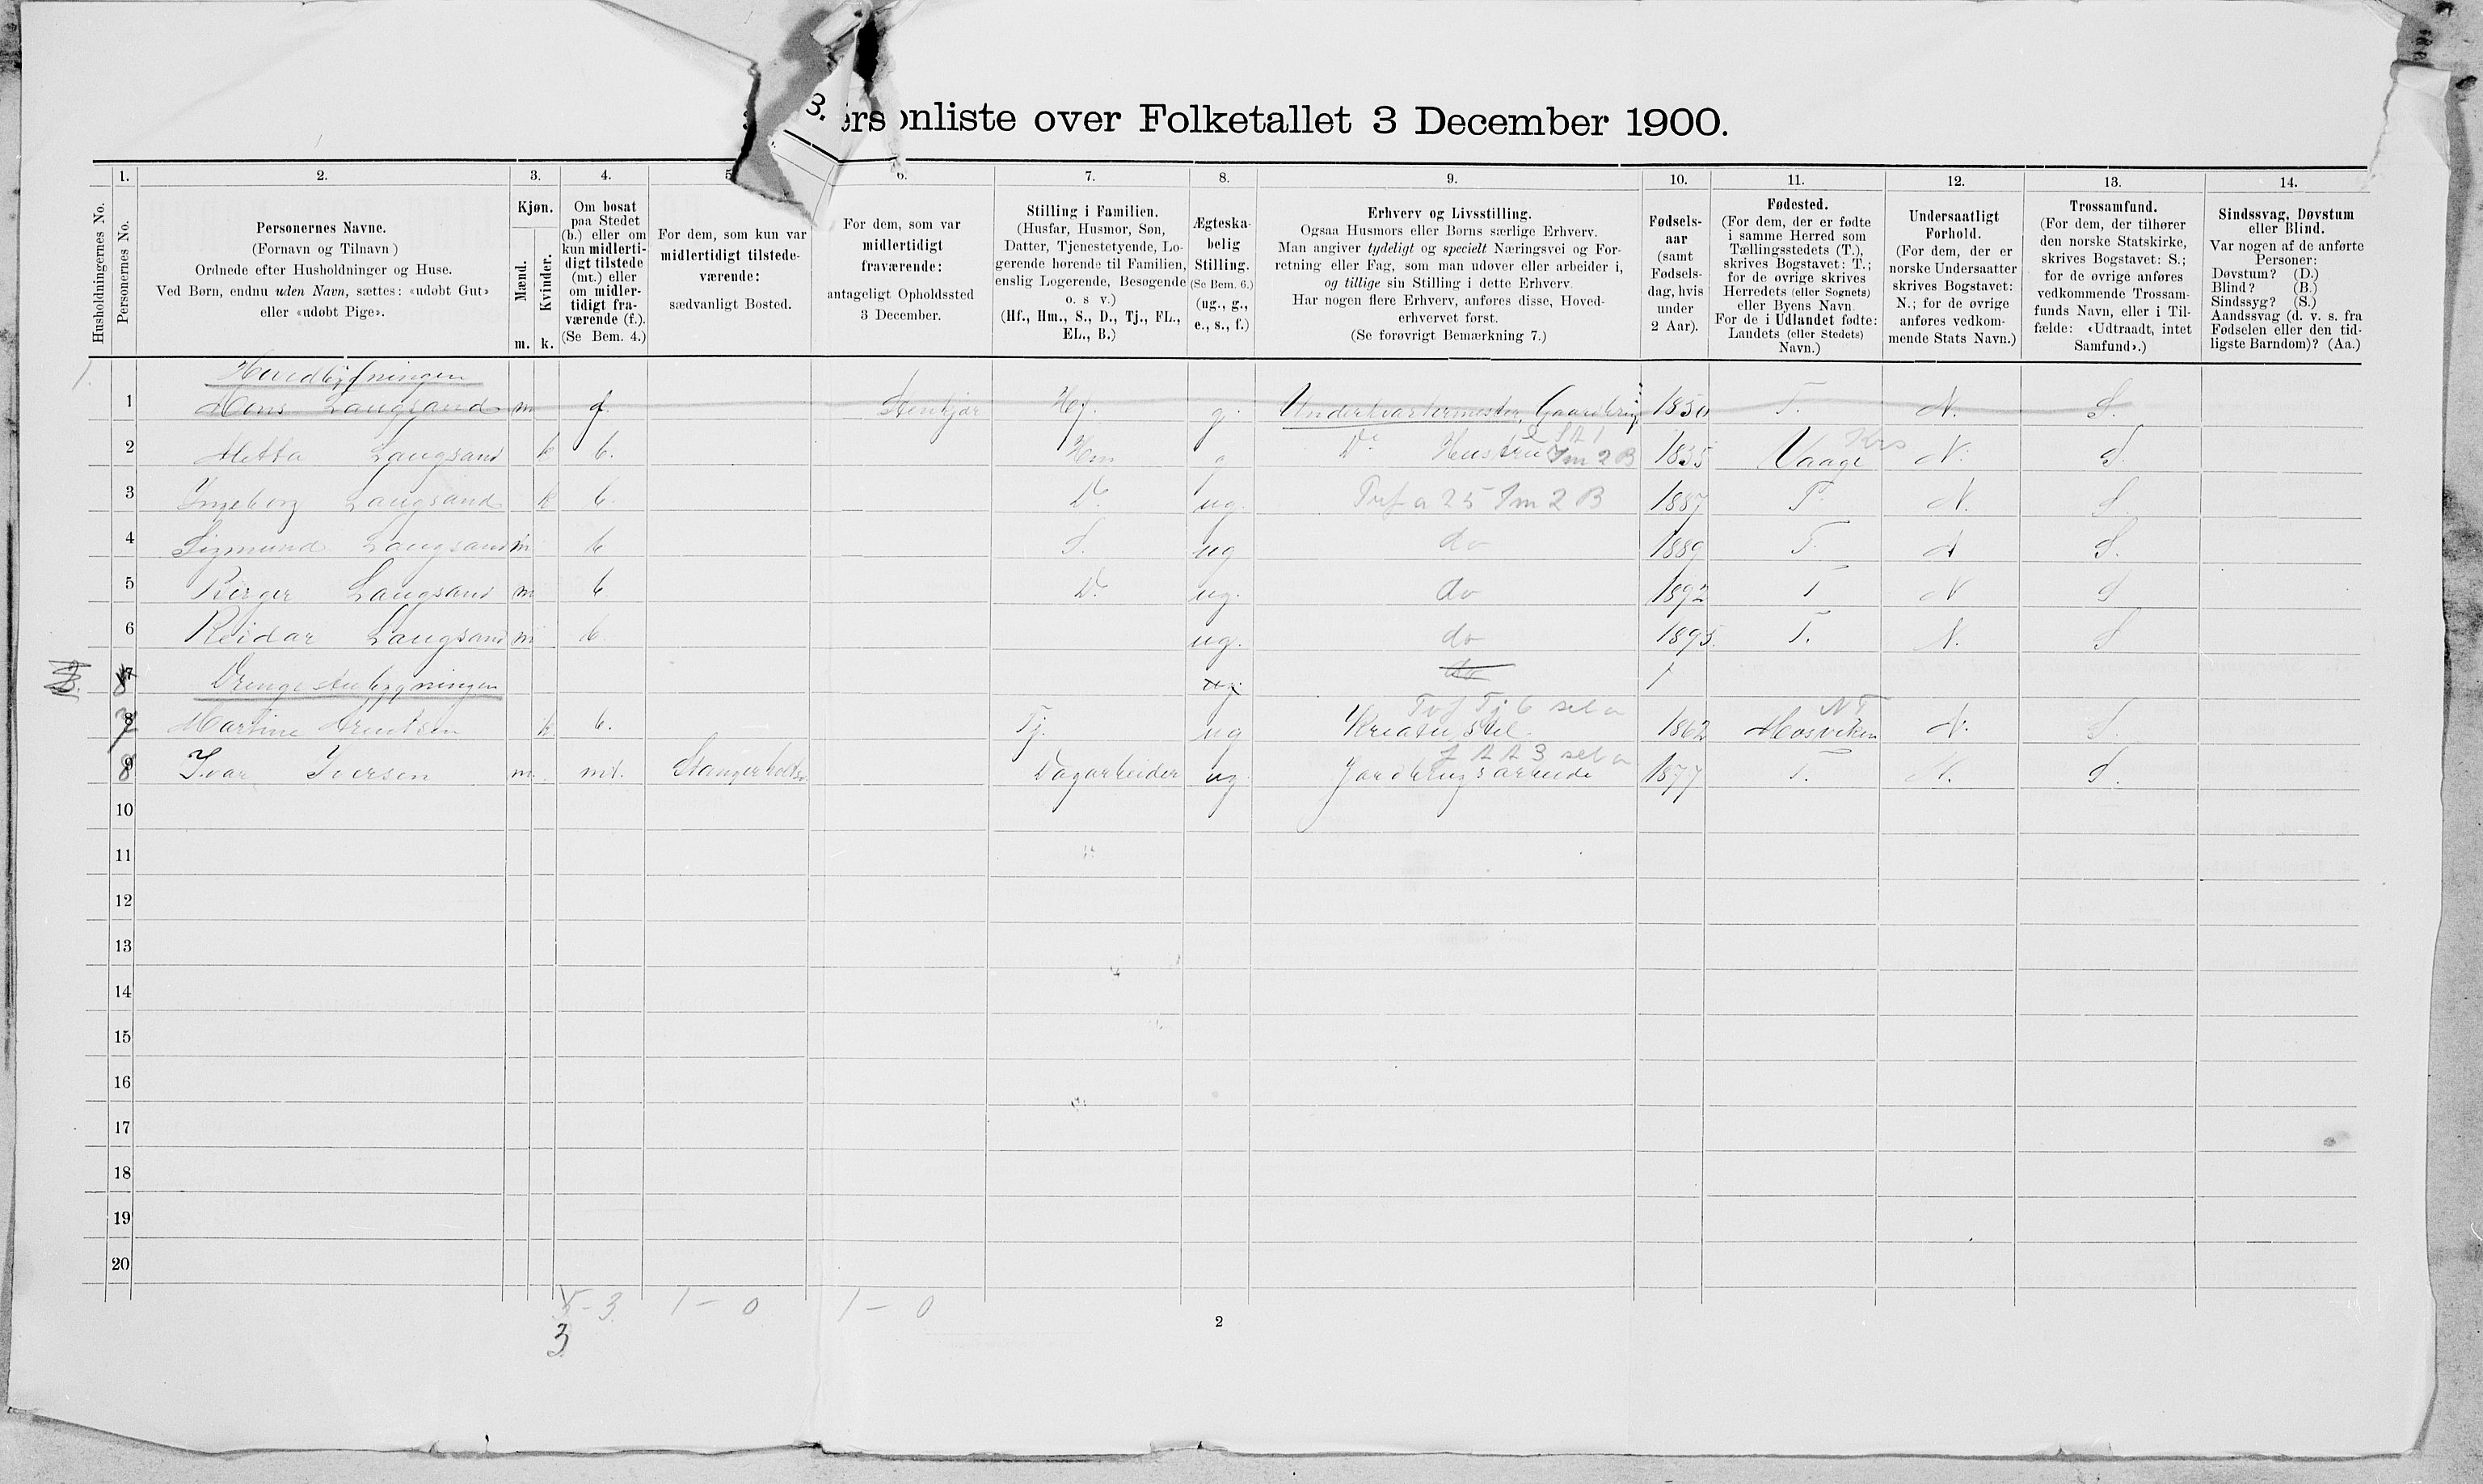 3. ersonliste over Folketallet 3 December 1900.
1. 2. 3. 4. 5. 6. 7. 8. 9. 10. 11. 12. 13. 14.
Husholdningernes No.
Personernes No.
Personernes Navne.
(Fornavn og Tilnavn)
Ordnede efter Husholdninger og Huse.
Ved Børn, endnu uden Navn, sættes: «udøbt Gut»
eller «udøbt Pige».
Kjøn.
Mænd.
Kvinder.
m. k.
Om bosat
paa Stedet
(b.) eller om
kun midlerti-
digt tilstede
(mt.) eller
om midler-
tidigt fra-
værende (f.).
(Se Bem. 4.)
For dem, som kun var
midlertidigt tilstede-
værende:
sædvanligt Bosted.
For dem, som var
midlertidigt
fraværende:
antageligt Opholdssted
3 December.
Stilling i Familien.
(Husfar, Husmor, Søn,
Datter, Tjenestetyende, Lo-
gerende hørende til Familien,
enslig Logerende, Besøgende
o. s v.)
(Hf., Hm., S., D., Tj., FL.,
EL., B.)
Ægteska-
belig
Stilling.
(Se Bem. 6.)
(ug., g.,
e., s., f.)
Erhverv og Livsstilling.
Ogsaa Husmors eller Børns særlige Erhverv.
Man angiver tydeligt og specielt Næringsvei og For-
retning eller Fag, som man udøver eller arbeider i,
og tillige sin Stilling i dette Erhverv.
Har nogen flere Erhverv, anføres disse, Hoved-
erhvervet først.
(Se forøvrigt Bemærkning 7.)
Fødsels-
aar
(samt
Fødsels-
dag, hvis
under
2 Aar).
Fødested.
(For dem, der er fødte
i samme Herred som
Tællingsstedets (T.),
skrives Bogstavet: T.;
for de øvrige skrives
Herredets (eller Sognets)
eller Byens Navn.
For de i Udlandet fødte:
Landets (eller Stedets)
Navn.)
Undersaatligt
Forhold.
(For dem, der er
norske Undersaatter
skrives Bogstavet:
N.; for de øvrige
anføres vedkom-
mende Stats Navn.)
Trossamfund.
(For dem, der tilhører
den norske Statskirke,
skrives Bogstavet: S.;
for de øvrige anføres
vedkommende Trossam-
funds Navn, eller i Til-
fælde: «Udtraadt, intet
Samfund».)
Sindssvag, Døvstum
eller Blind.
Var nogen af de anførte
Personer:
Døvstum? (D.)
Blind? (B.)
Sindssyg? (S.)
Aandssvag (d. v. s. fra
Fødselen eller den tid-
ligste Barndom)? (Aa.)
1.
1 Langsand m f. Stenkjær Hf. g. Underkvartermester, Gaardbrug 1850 T. N. S.
2 Metta Langsand k b. Hm g Do Hustru Sm 2 B 1855 Vaage N. S.
3 Ingeborg Langsand k b. D. ug. 25 Sm 2 B 1887 T. N. S.
4 Sigmund Langsand m b S. ug do 1889 T. N S.
5 Birger Langsand m b D. ug. do 1892 T N S
6 Reidar Langsand m b ug. do 1895. T. N. S
7 Drengestubygningen ug. do
NT
7 8 Martine Arentsen k b. Tj. ug Kreaturstel 1862 Mosviken N. S.
8 9 Ivar Iversen m. mt. Dagarbeider ug. Jordbrugsarbeide 1877 T. N. S.
10
11
12
13
14
15
16
17
18
19
20
5-3 1-0 1-0
3
2